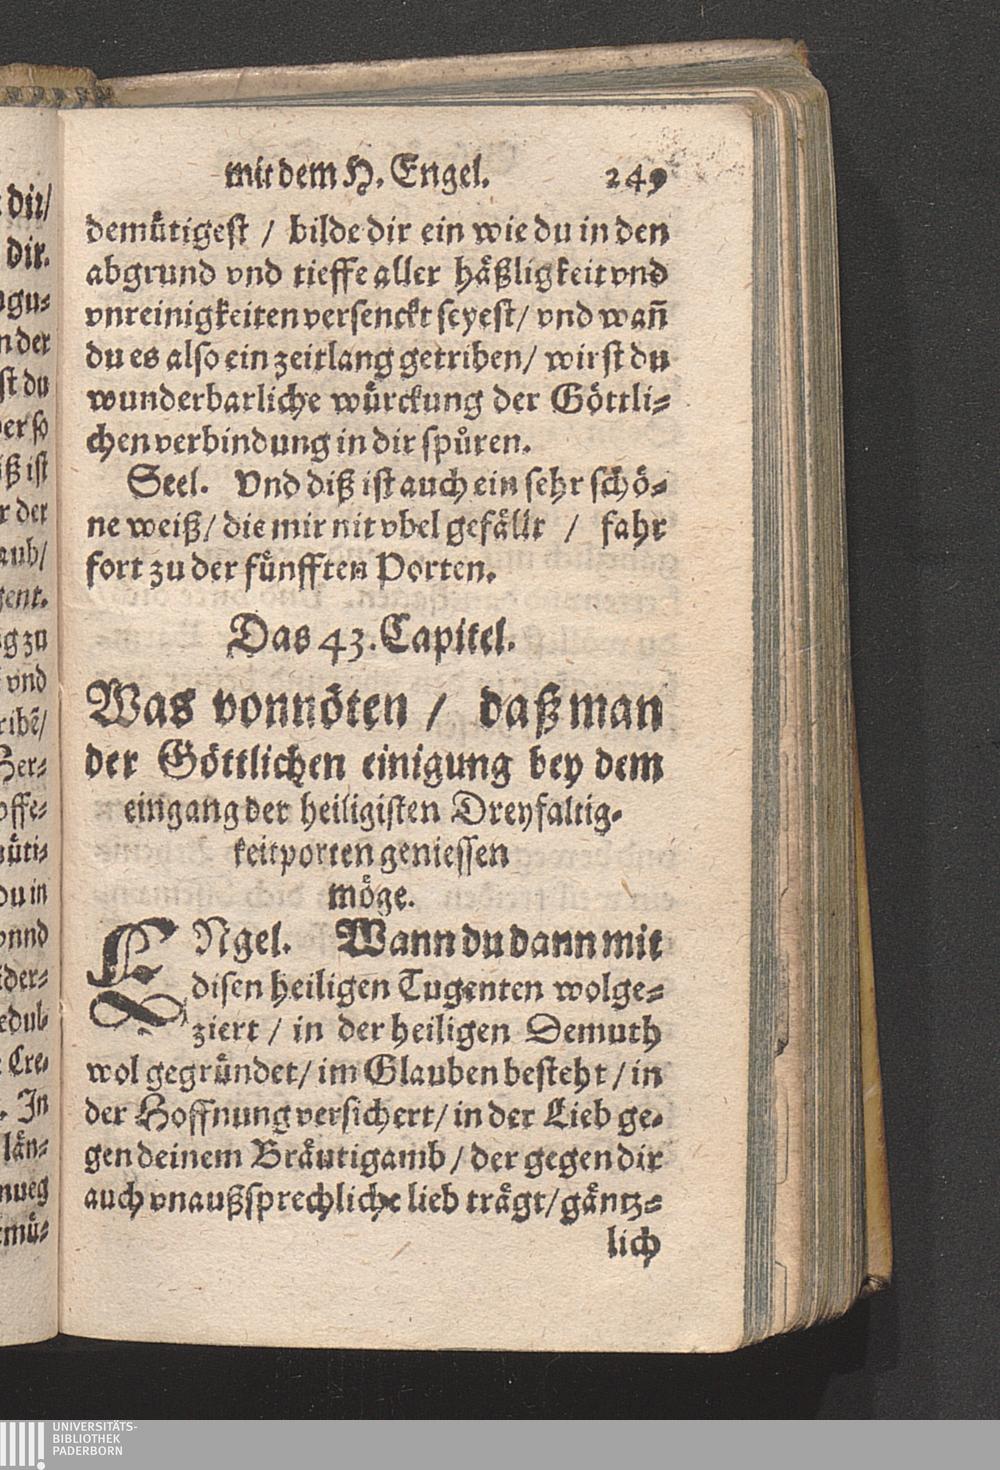 dir/
dir.
ngu-
n der
st du
er so
iß ist
r der
aub/
gent.
g zu
vnd
ribẽ/
Her-
offe-
müti-
du in
vnnd
ider-
edul-
Cre-
. In
län-
nueg
mü-
mit dem H. Engel. 249
demütigest / bilde dir ein wie du in den
abgrund vnd tieffe aller häßligkeit vnd
vnreinigkeiten versenckt seyest/ vnd wañ
du es also ein zeitlang getriben/ wirst du
wunderbarliche würckung der Göttli-
chen verbindung in dir spüren.
Seel. Vnd diß ist auch ein sehr schö-
ne weiß/ die mir nit vbel gefällt / fahr
fort zu der fünfften Porten.
Das 43. Capitel.
Was vonnöten / daß man
der Göttlichen einigung bey dem
eingang der heiligisten Dreyfaltig-
keitporten geniessen
möge.
ENgel. Wann du dann mit
disen heiligen Tugenten wolge-
ziert / in der heiligen Demuth
wol gegründet/ im Glauben besteht / in
der Hoffnung versichert/ in der Lieb ge-
gen deinem Bräutigamb / der gegen dir
auch vnaußsprechliche lieb trägt/ gäntz-
lich
UNIVERSITÄTS-
BIBLIOTHEK
PADERBORN